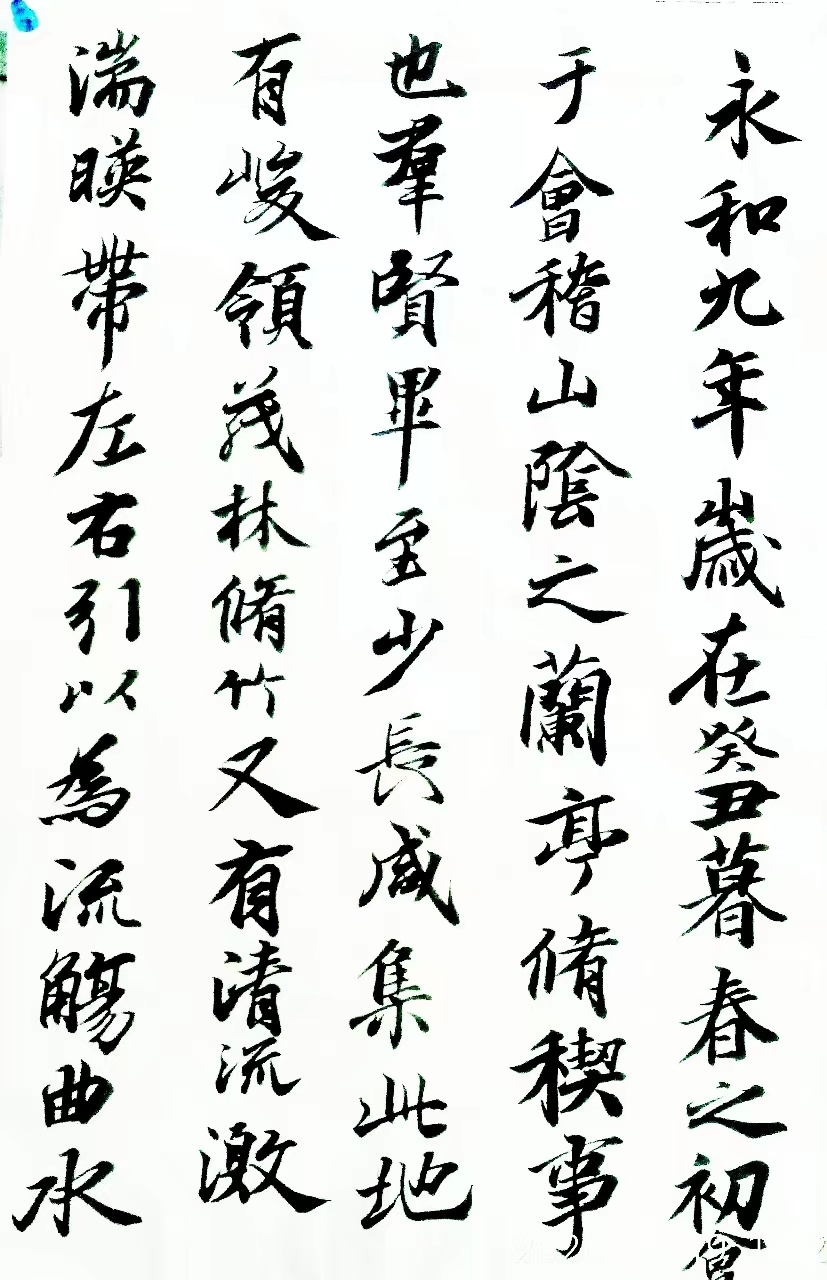 永和九年歲在癸丑暮春之初會
于會稽山陰之蘭亭脩稧事
也羣賢畢至少長咸集此地
有峻領茂林脩竹又有清流激
湍暎帶左右引以為流觴曲水